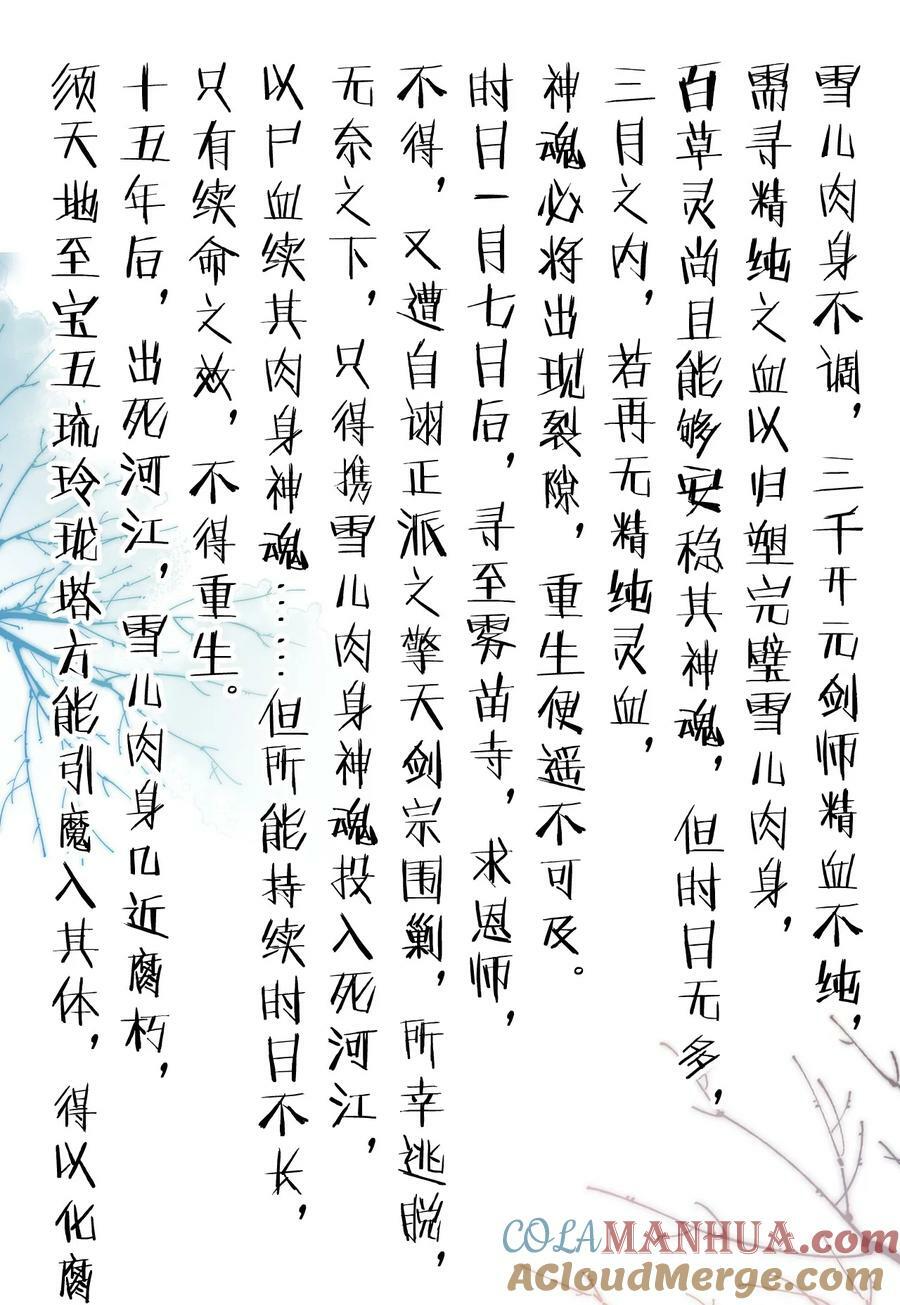 雪儿肉身不调，三千开元剑师精血不纯，
需寻精纯之血以归塑完璧雪儿肉身，
百草灵尚且能够安稳其神魂，但时日无多，
三月之内，若再无精纯灵血，
神魂必将出现裂隙，重生便遥不可及。
时日一月七日后，寻至雾苗寺，求恩师，
不得，又遭自诩正派之擎天剑宗围剿，所幸逃脱，
无奈之下，只得携雪儿肉身神魂投入死河江，
以尸血续其肉身神魂……但所能持续时日不长，
只有续命之效，不得重生。
十五年后，出死河江，雪儿肉身几近腐朽，
须天地至宝五琉玲珑塔方能引魔入其体，得以化腐
COLAMANHUA.com
ACloudMerge.com